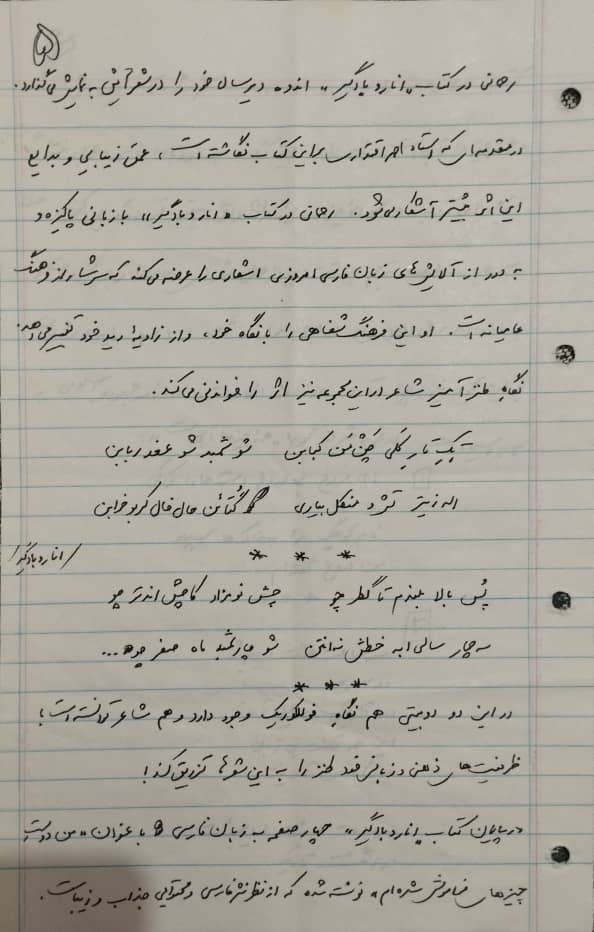 ۵
رحمانی در کتاب «انار و بادگیر» اندوه دیرسال خود را در شعرهایش به نمایش می‌گذارد.
در مقدمه‌ای که استاد احمد اقتداری بر این کتاب نگاشته است، عمق زیبایی و بدایع
این اثر بیشتر آشکار می‌شود. رحمانی در کتاب «انار و بادگیر» با زبانی پاکیزه و
به دور از آلایش‌های زبان فارسی امروزی اشعاری را عرضه می‌کند که سرشار از فرهنگ
عامیانه است. او این فرهنگ شفاهی را با نگاه خود، و از زاویه دید خود تفسیر می‌دهد.
نگاهِ طنزآمیز شاعر در این مجموعه نیز اثر را خواندنی می‌کند.
تک تار کلی کباین شو شمبد شو عغدر باین
اله زیتر تژد منکل بیاری گتائن حال فال کربو خراین
* * *
/انار و بادگیر/
پُس بالا بلندم تا گطر چو چش نومزاد کاچش اندتر چو
سه چار سالی ابه خطش نه‌انتن شو چارشمبد ماه صفر چو...
* * *
در این دو دوبیتی هم نگاهِ فولکلوریک وجود دارد و هم شاعر توانسته است با
ظرفیت‌های ذهنی و زبانی خود طنز را به این شعرها تزریق کند!
در پایان کتاب «انار و بادگیر» چهار صفحه به زبان فارسی با عنوان «من دوست
چیزهای فراموش شده‌ام» نوشته شده که از نظر نثر فارسی و محتوایی جذاب و زیباست.